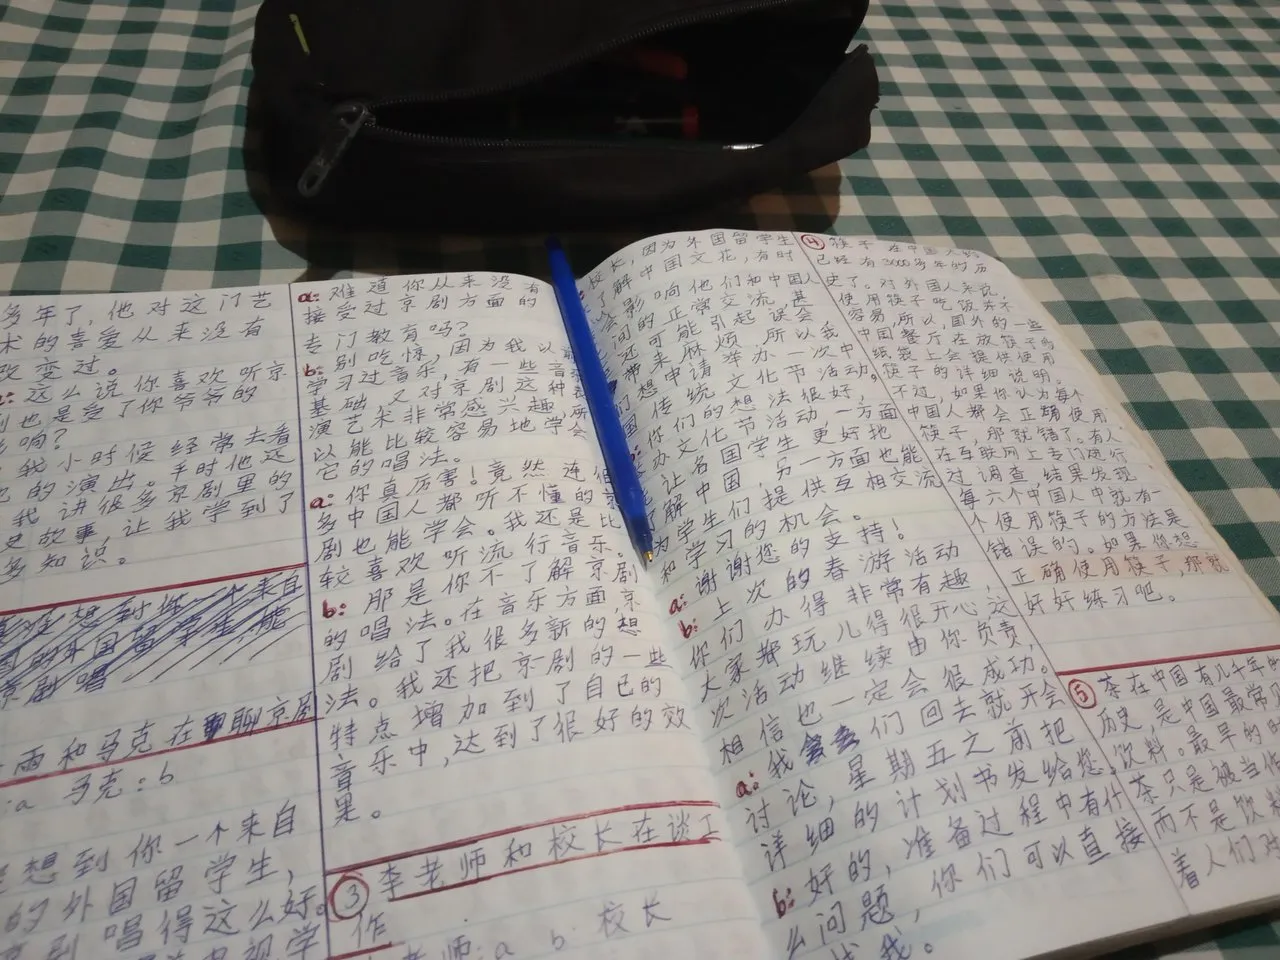 多年了，他对这门艺
术的喜爱从来没有
改变过。
这么说你喜欢听京
剧也是受了你爷爷的
影响？
我小时候经常去看
他的演出。平时他还
我讲很多京剧里的
史故事，让我学到了
多知识。
雨和马克在聊京剧
:a 马克:b
想到你一个来自
的外国留学生，
京剧唱得这么好。
a: 难道你从来没有
接受过京剧方面的
专门教育吗？
b: 别吃惊，因为我以前
学习过音乐，有一些音乐
基础，又对京剧这种表
演艺术非常感兴趣，所
以能比较容易地学会
它的唱法。
a: 你真厉害！竟然连很
多中国人都听不懂的京
剧也能学会。我还是比
较喜欢听流行音乐。
b: 那是你不了解京剧
的唱法。在音乐方面，京
剧给了我很多新的想
法。我还把京剧的一些
特点增加到了自己的
音乐中，达到了很好的效
果。
③ 李老师和校长在谈工
作
老师:a b:校长
校长，因为外国留学生
了解中国文化，有时
会影响他们和中国人
之间的正常交流，甚
还可能引起误会，
带来麻烦，所以我
们想申请举办一次中
国传统文化节活动。
你们的想法很好，
办文化节活动一方面
让各国学生更好地
了解中国，另一方面也能
为学生们提供互相交流
和学习的机会。
a: 谢谢您的支持！
b: 上次的春游活动
你们办得非常有趣，
大家都玩儿得很开心，这
次活动继续由你负责，
相信也一定会很成功。
a: 我们回去就开会
讨论，星期五之前把
详细的计划书发给您。
b: 好的，准备过程中有什
么问题，你们可以直接
找我。
④ 筷子在中国
已经有3000多年的历
史了。对外国人来说，
使用筷子吃饭并不
容易，所以，国外的一些
中国餐厅在放筷子的
纸袋上会提供使用
筷子的详细说明。
不过，如果你认为每个
中国人都会正确使用
筷子，那就错了。有人
在互联网上专门进行
过调查，结果发现
每六个中国人中就有一
个使用筷子的方法是
错误的。如果你想
正确使用筷子，那就
好好练习吧。
⑤ 茶在中国有几千年的
历史，是中国最常见
饮料。最早的时
茶只是被当作
而不是饮料
着人们对